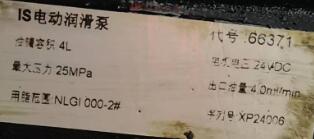 IS电动润滑泵
代号：66371
油罐容积 4L
电机电压 24VDC
最大压力 25MPa
出口油量 4.0ml/min
用脂范围：NLGI 000-2#
序列号：XP24006